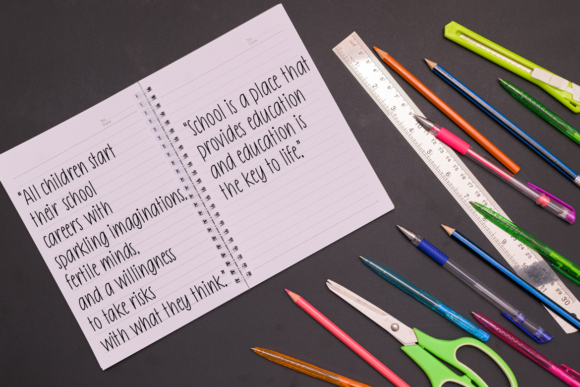 "All children start
their school
careers with
sparkling imaginations,
fertile minds,
and a willingness
to take risks
with what they think."
"School is a place that
provides education
and education is
the key to life."